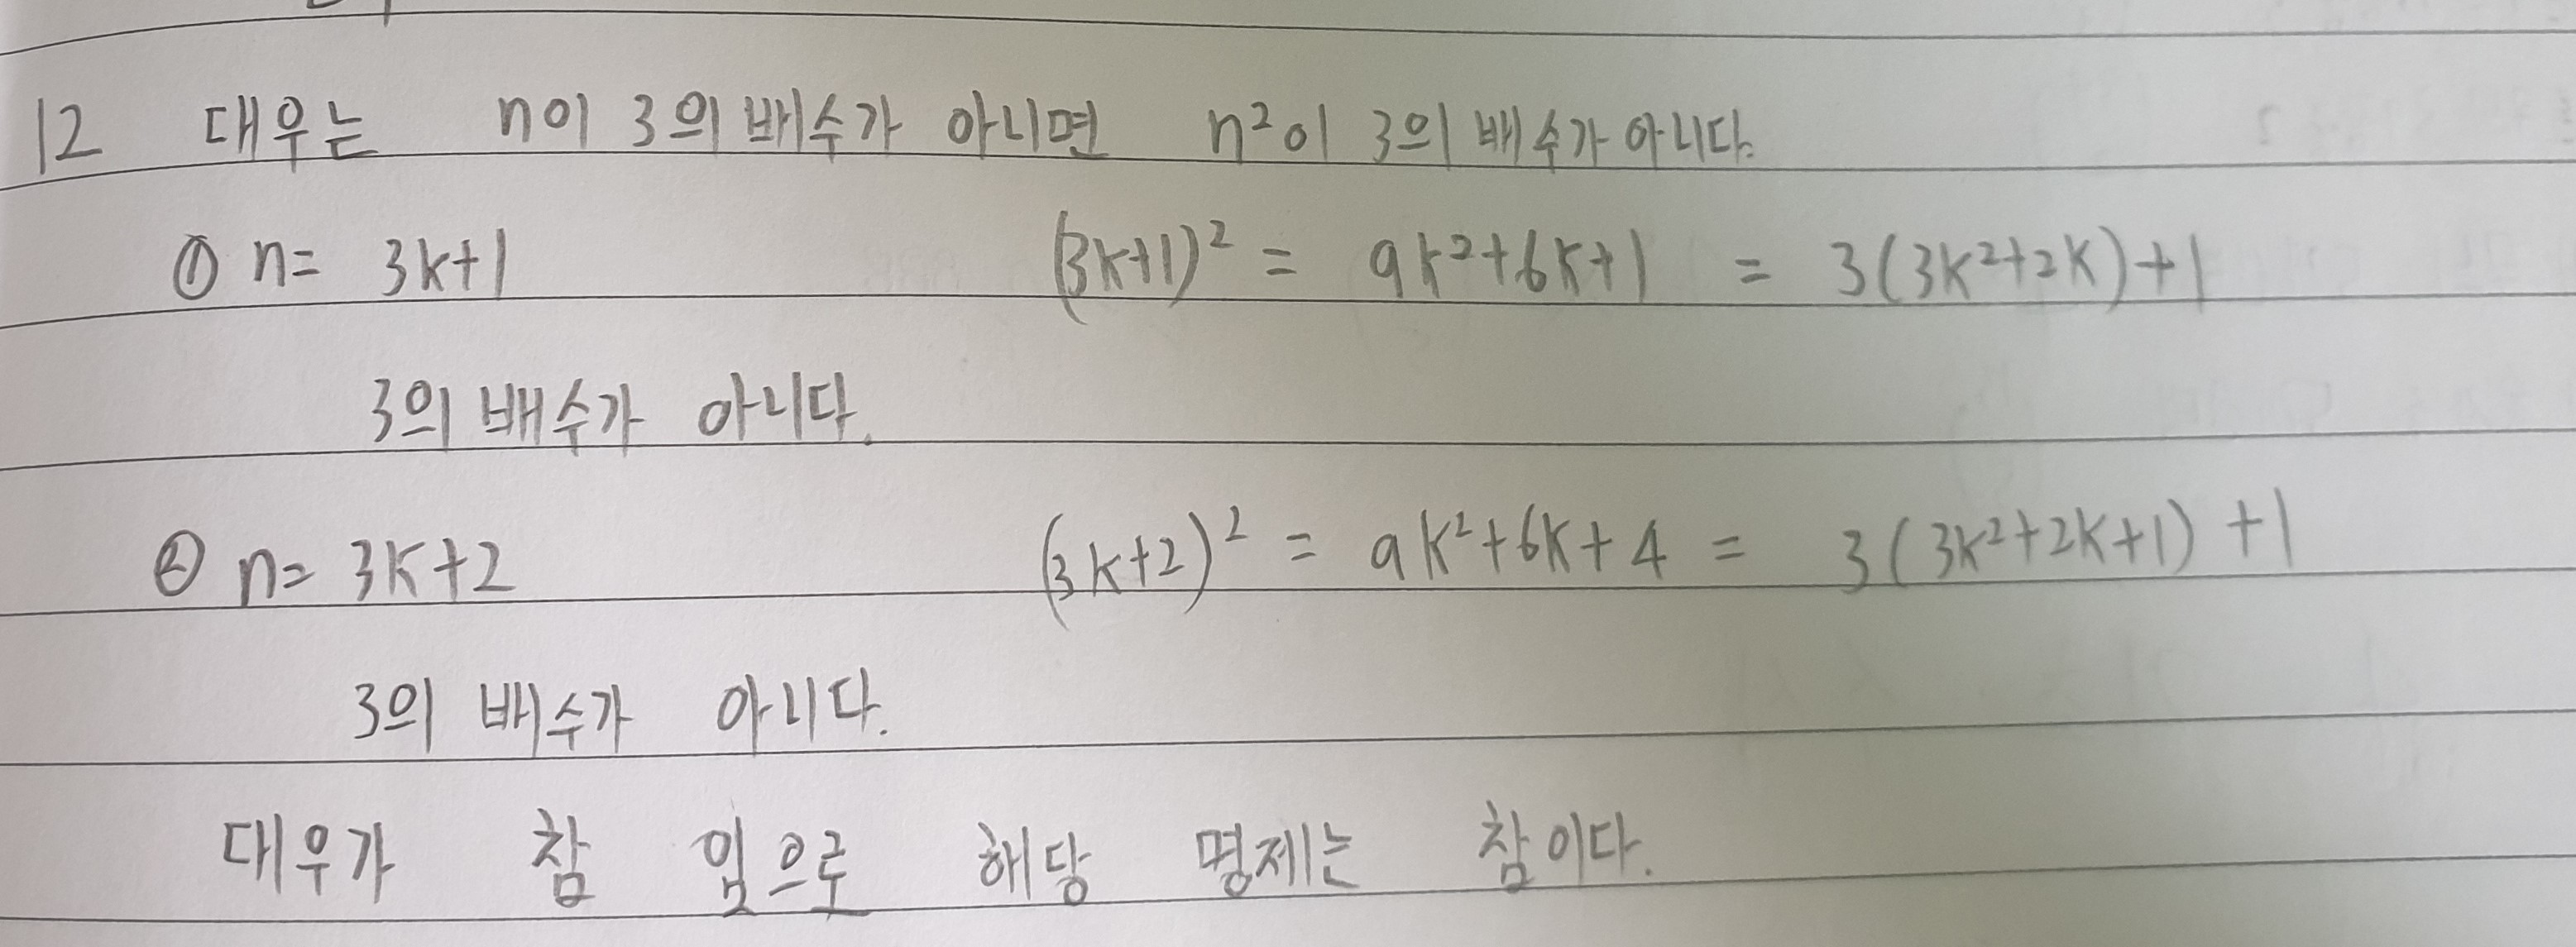 12 대우는 n이 3의 배수가 아니면 n²이 3의 배수가 아니다.
① n= 3k+1 (3k+1)² = 9k²+6k+1 = 3(3k²+2k)+1
3의 배수가 아니다.
② n= 3k+2 (3k+2)² = 9k²+6k+4 = 3(3k²+2k+1)+1
3의 배수가 아니다.
대우가 참 임으로 해당 명제는 참이다.